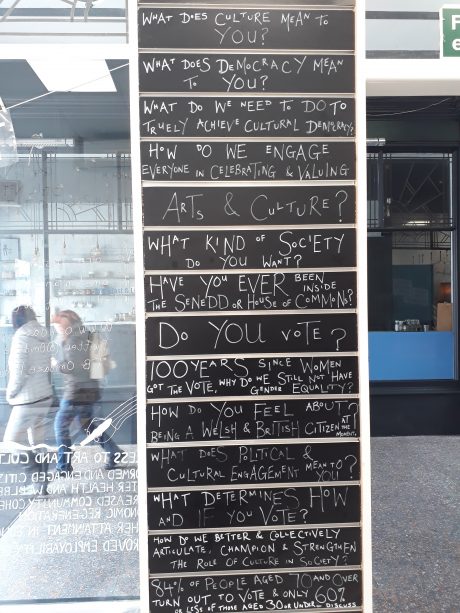 WHAT DOES CULTURE MEAN TO
YOU?
WHAT DOES DEMOCRACY MEAN
TO YOU?
WHAT DO WE NEED TO DO TO
TRUELY ACHIEVE CULTURAL DEMOCRACY?
HOW DO WE ENGAGE
EVERYONE IN CELEBRATING & VALUING
ARTS & CULTURE?
WHAT KIND OF SOCIETY
DO YOU WANT?
HAVE YOU EVER BEEN INSIDE
THE SENEDD OR HOUSE OF COMMONS?
DO YOU VOTE?
100 YEARS SINCE WOMEN
GOT THE VOTE, WHY DO WE STILL NOT HAVE
GENDER EQUALITY?
HOW DO YOU FEEL ABOUT
BEING A WELSH & BRITISH CITIZEN AT THE MOMENT?
WHAT DOES POLITICAL &
CULTURAL ENGAGEMENT MEAN TO YOU?
WHAT DETERMINES HOW
AND IF YOU VOTE?
HOW DO WE BETTER & COLLECTIVELY
ARTICULATE, CHAMPION & STRENGTHEN
THE ROLE OF CULTURE IN SOCIETY?
84% OF PEOPLE AGED 70 AND OVER
TURN OUT TO VOTE & ONLY 60%
OR LESS OF THOSE AGED 30 OR UNDER DISCUSS
ESS TO ART AND CULT
ORMED AND ENGAGED CITIZ
TER HEALTH AND WELLB
REASED COMMUNITY COHE
NOMIC REGENERATION
HER ATTAINMENT IN
ROVED EMPLOYABILI
F
e